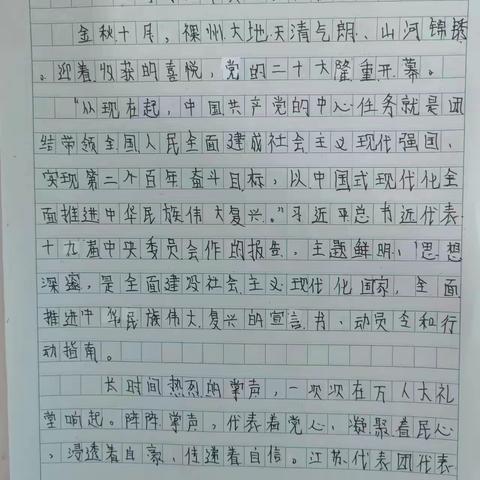 金秋十月，神州大地天清气朗、山河锦绣
。迎着收获的喜悦，党的二十大隆重开幕。
“从现在起，中国共产党的中心任务就是团
结带领全国人民全面建成社会主义现代强国、
实现第二个百年奋斗目标，以中国式现代化全
面推进中华民族伟大复兴。”习近平总书近代表
十九届中央委员会作的报告，主题鲜明、思想
深邃，是全面建设社会主义现代化国家，全面
推进中华民族伟大复兴的宣言书、动员令和行
动指南。
长时间热烈的掌声，一次次在万人大礼
堂响起。阵阵掌声，代表着党心，凝聚着民心
、浸透着自豪、传递着自信。江苏代表团代表